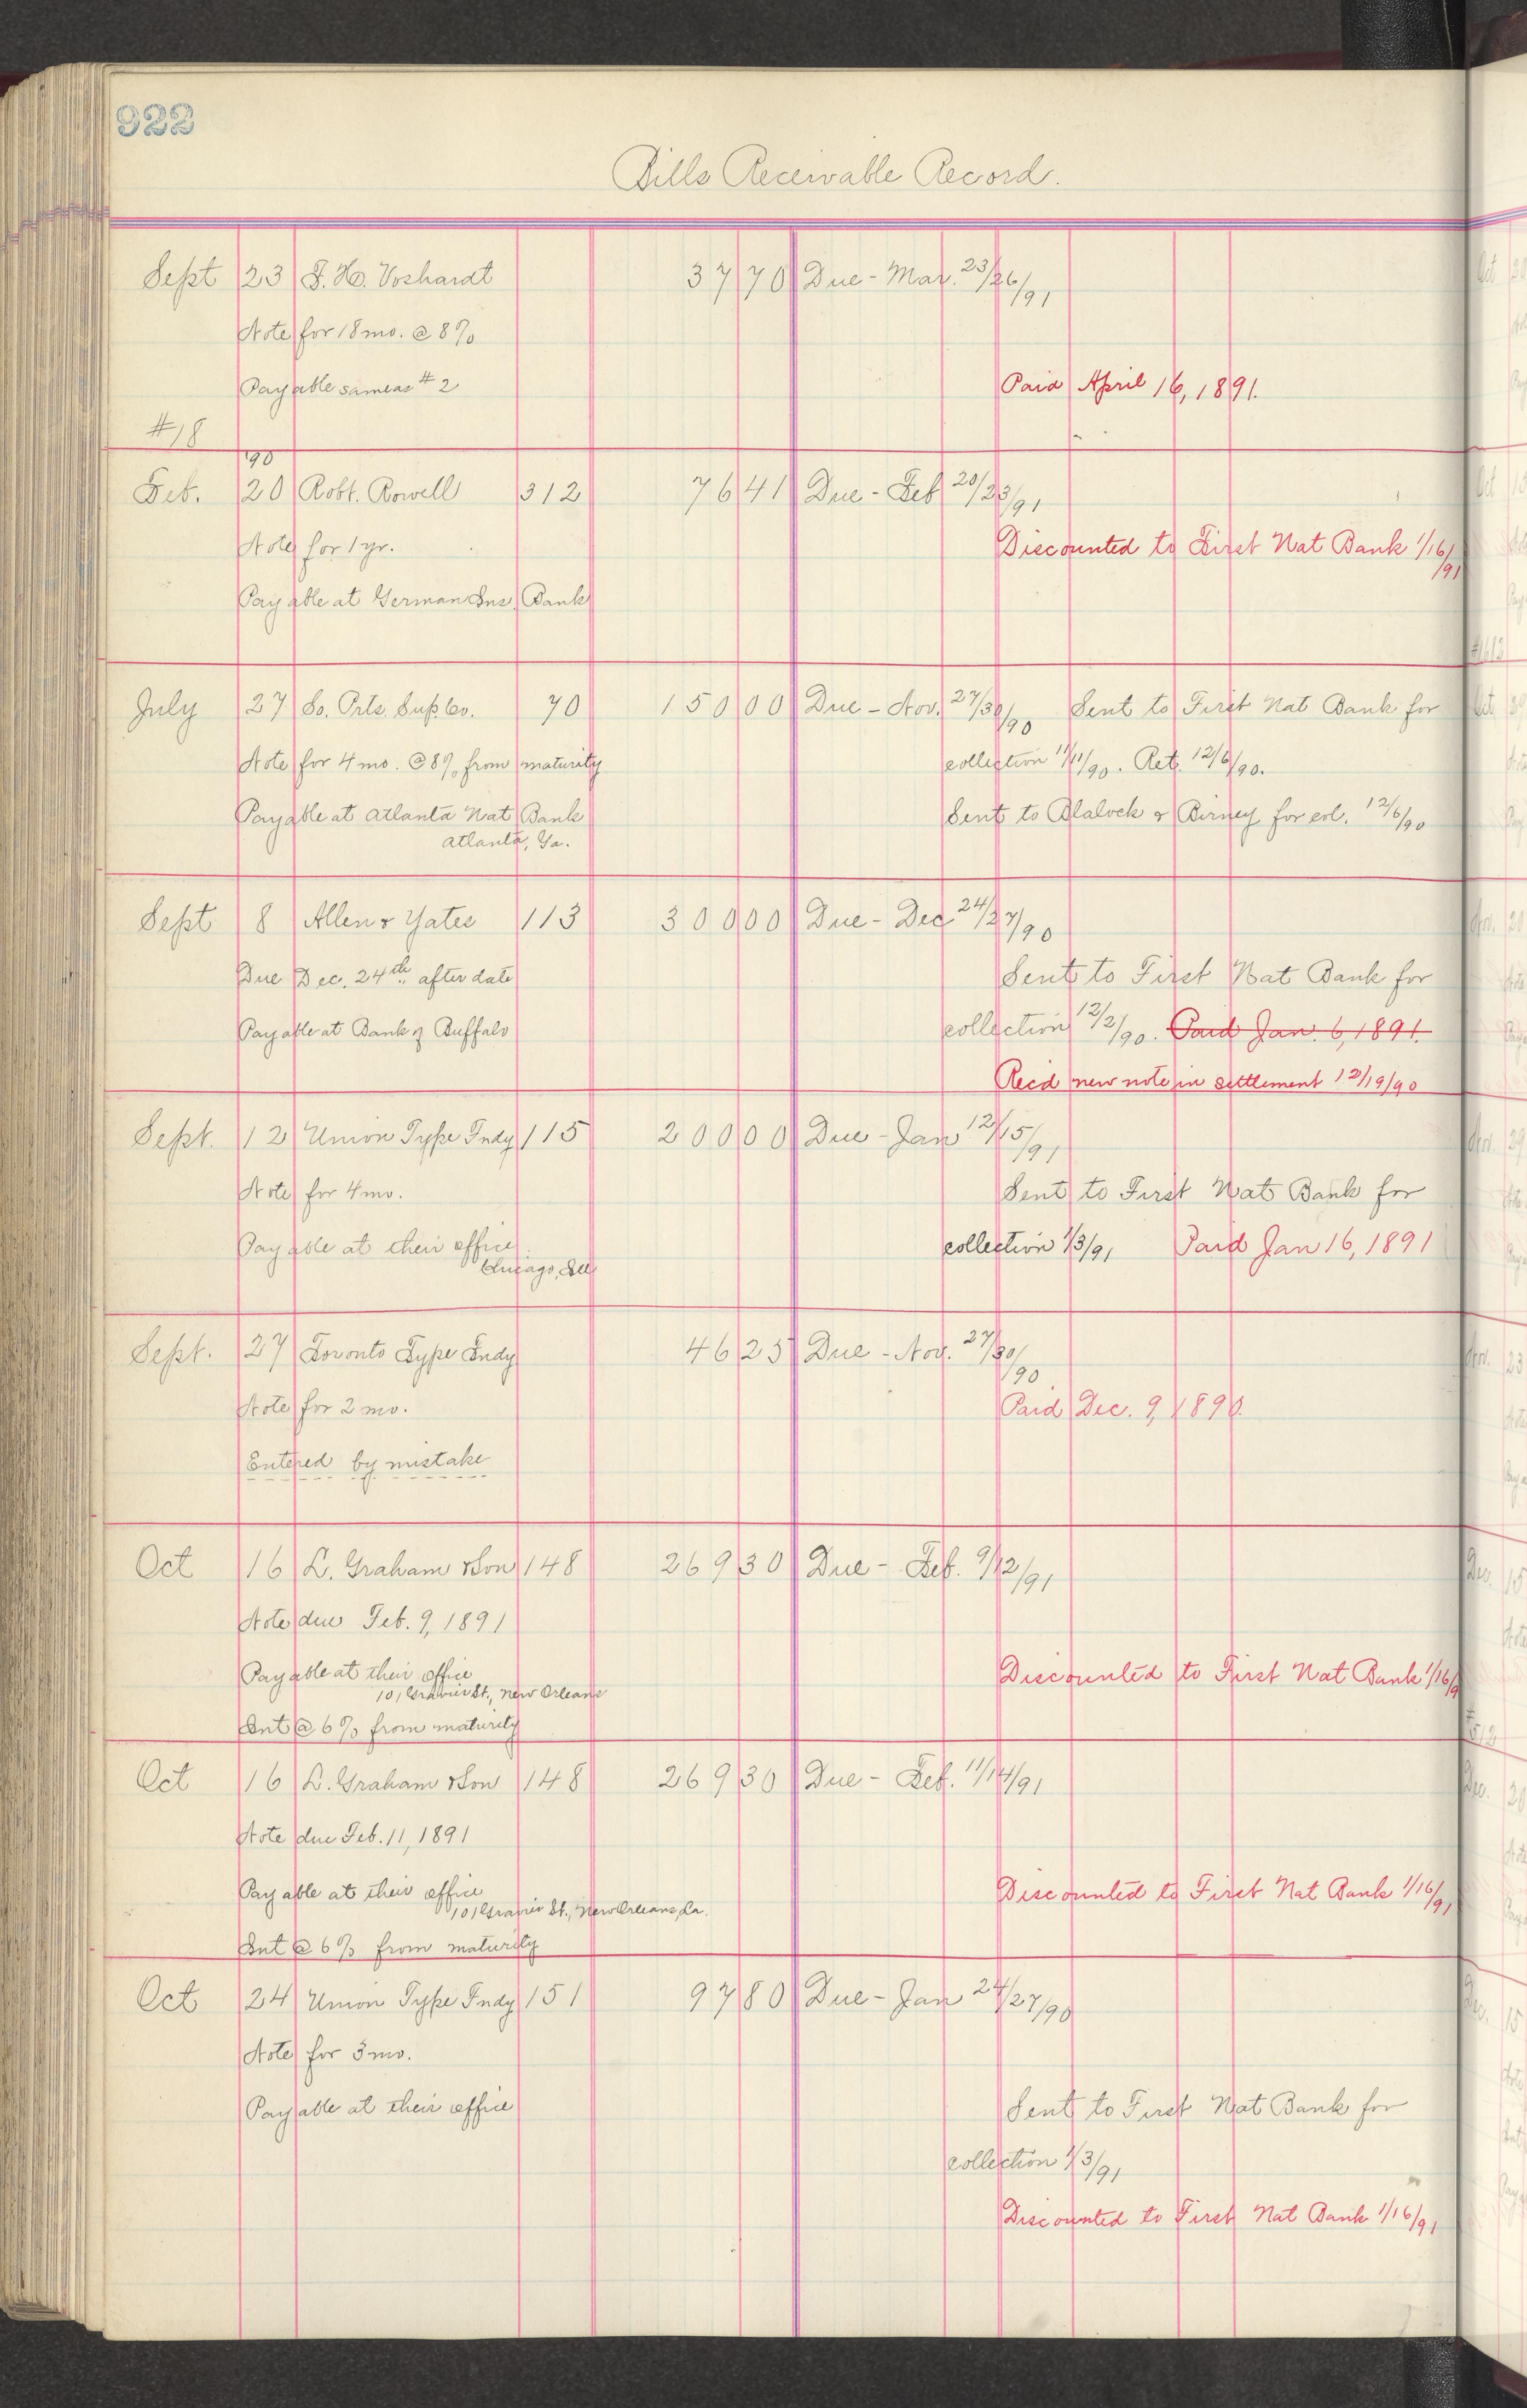 922
Bills Receivable Record.
Sept 23 F. H. Voshardt 37 70 Due - Mar. 23/26/91
Note for 18 mo. @ 8%
Payable same as #2 Paid April 16, 1891.
#18
'90
Feb. 20 Robt. Rowell 312 76 41 Due - Feb 20/23/91
Note for 1 yr. Discounted to First Nat Bank 1/16/91
Payable at German Ins. Bank
July 27 So. Prts. Sup. Co. 70 150 00 Due - Nov. 27/30/90 Sent to First Nat Bank for
Note for 4 mo. @ 8% from maturity collection 11/11/90. Ret. 12/6/90.
Payable at Atlanta Nat Bank Sent to Blalock & Birney for col. 12/6/90
Atlanta, Ga.
Sept 8 Allen & Yates 113 300 00 Due - Dec 24/27/90
Due Dec. 24th after date Sent to First Nat Bank for
Payable at Bank of Buffalo collection 12/2/90. Paid Jan. 6, 1891.
Recd new note in settlement 12/19/90
Sept. 12 Union Type Fndy 115 200 00 Due - Jan 12/15/91
Note for 4 mo. Sent to First Nat Bank for
Payable at their office collection 1/3/91 Paid Jan 16, 1891
Chicago, Ill
Sept. 27 Toronto Type Fndy 46 25 Due - Nov. 27/30/90
Note for 2 mo. Paid Dec. 9, 1890.
Entered by mistake
Oct 16 L. Graham & Son 148 269 30 Due - Feb. 9/12/91
Note due Feb. 9, 1891
Payable at their office Discounted to First Nat Bank 1/16/9
101 Gravier St., New Orleans
Int @ 6% from maturity
Oct 16 L. Graham & Son 148 269 30 Due - Feb. 11/14/91
Note due Feb. 11, 1891
Payable at their office Discounted to First Nat Bank 1/16/91
101 Gravier St., New Orleans, La.
Int @ 6% from maturity
Oct 24 Union Type Fndy 151 97 80 Due - Jan 24/27/90
Note for 3 mo.
Payable at their office Sent to First Nat Bank for
collection 1/3/91
Discounted to First Nat Bank 1/16/91